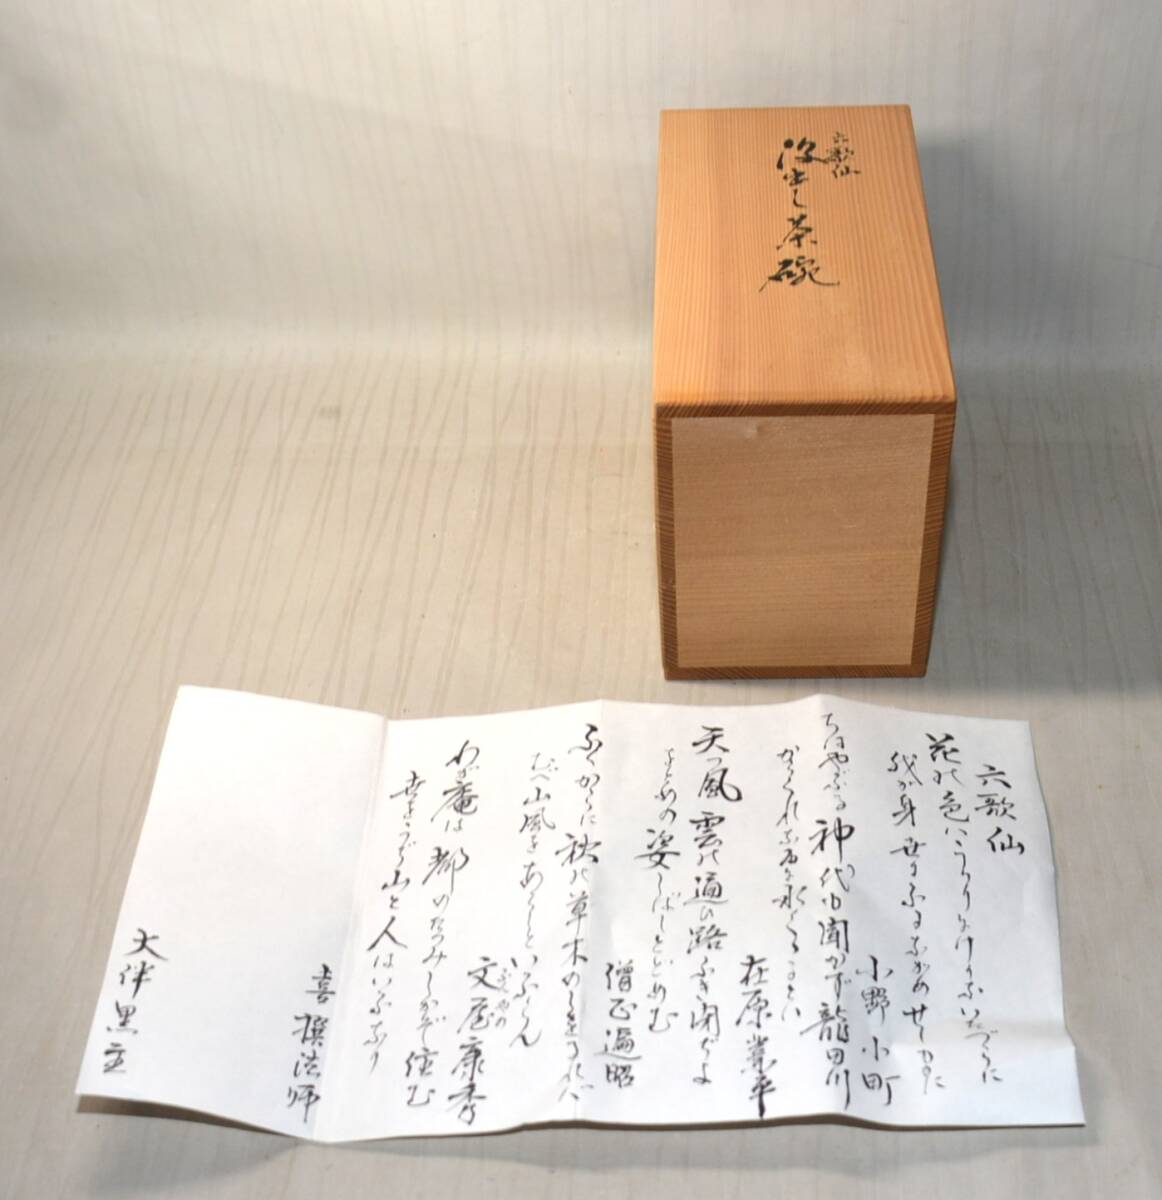 六歌仙
汲出し茶碗
六歌仙
花の色はうつりにけりないたづらに
我が身世にふるながめせしまに
小野小町
ちはやぶる神代も聞かず龍田川
からくれなゐに水くくるとは
在原業平
天つ風雲の通ひ路ふき閉ぢよ
をとめの姿しばしとどめむ
僧正遍昭
ふくからに秋の草木のしをるれば
むべ山風をあらしといふらん
文屋康秀
わが庵は都のたつみしかぞ住む
世をうぢ山と人はいふなり
喜撰法師
大伴黒主